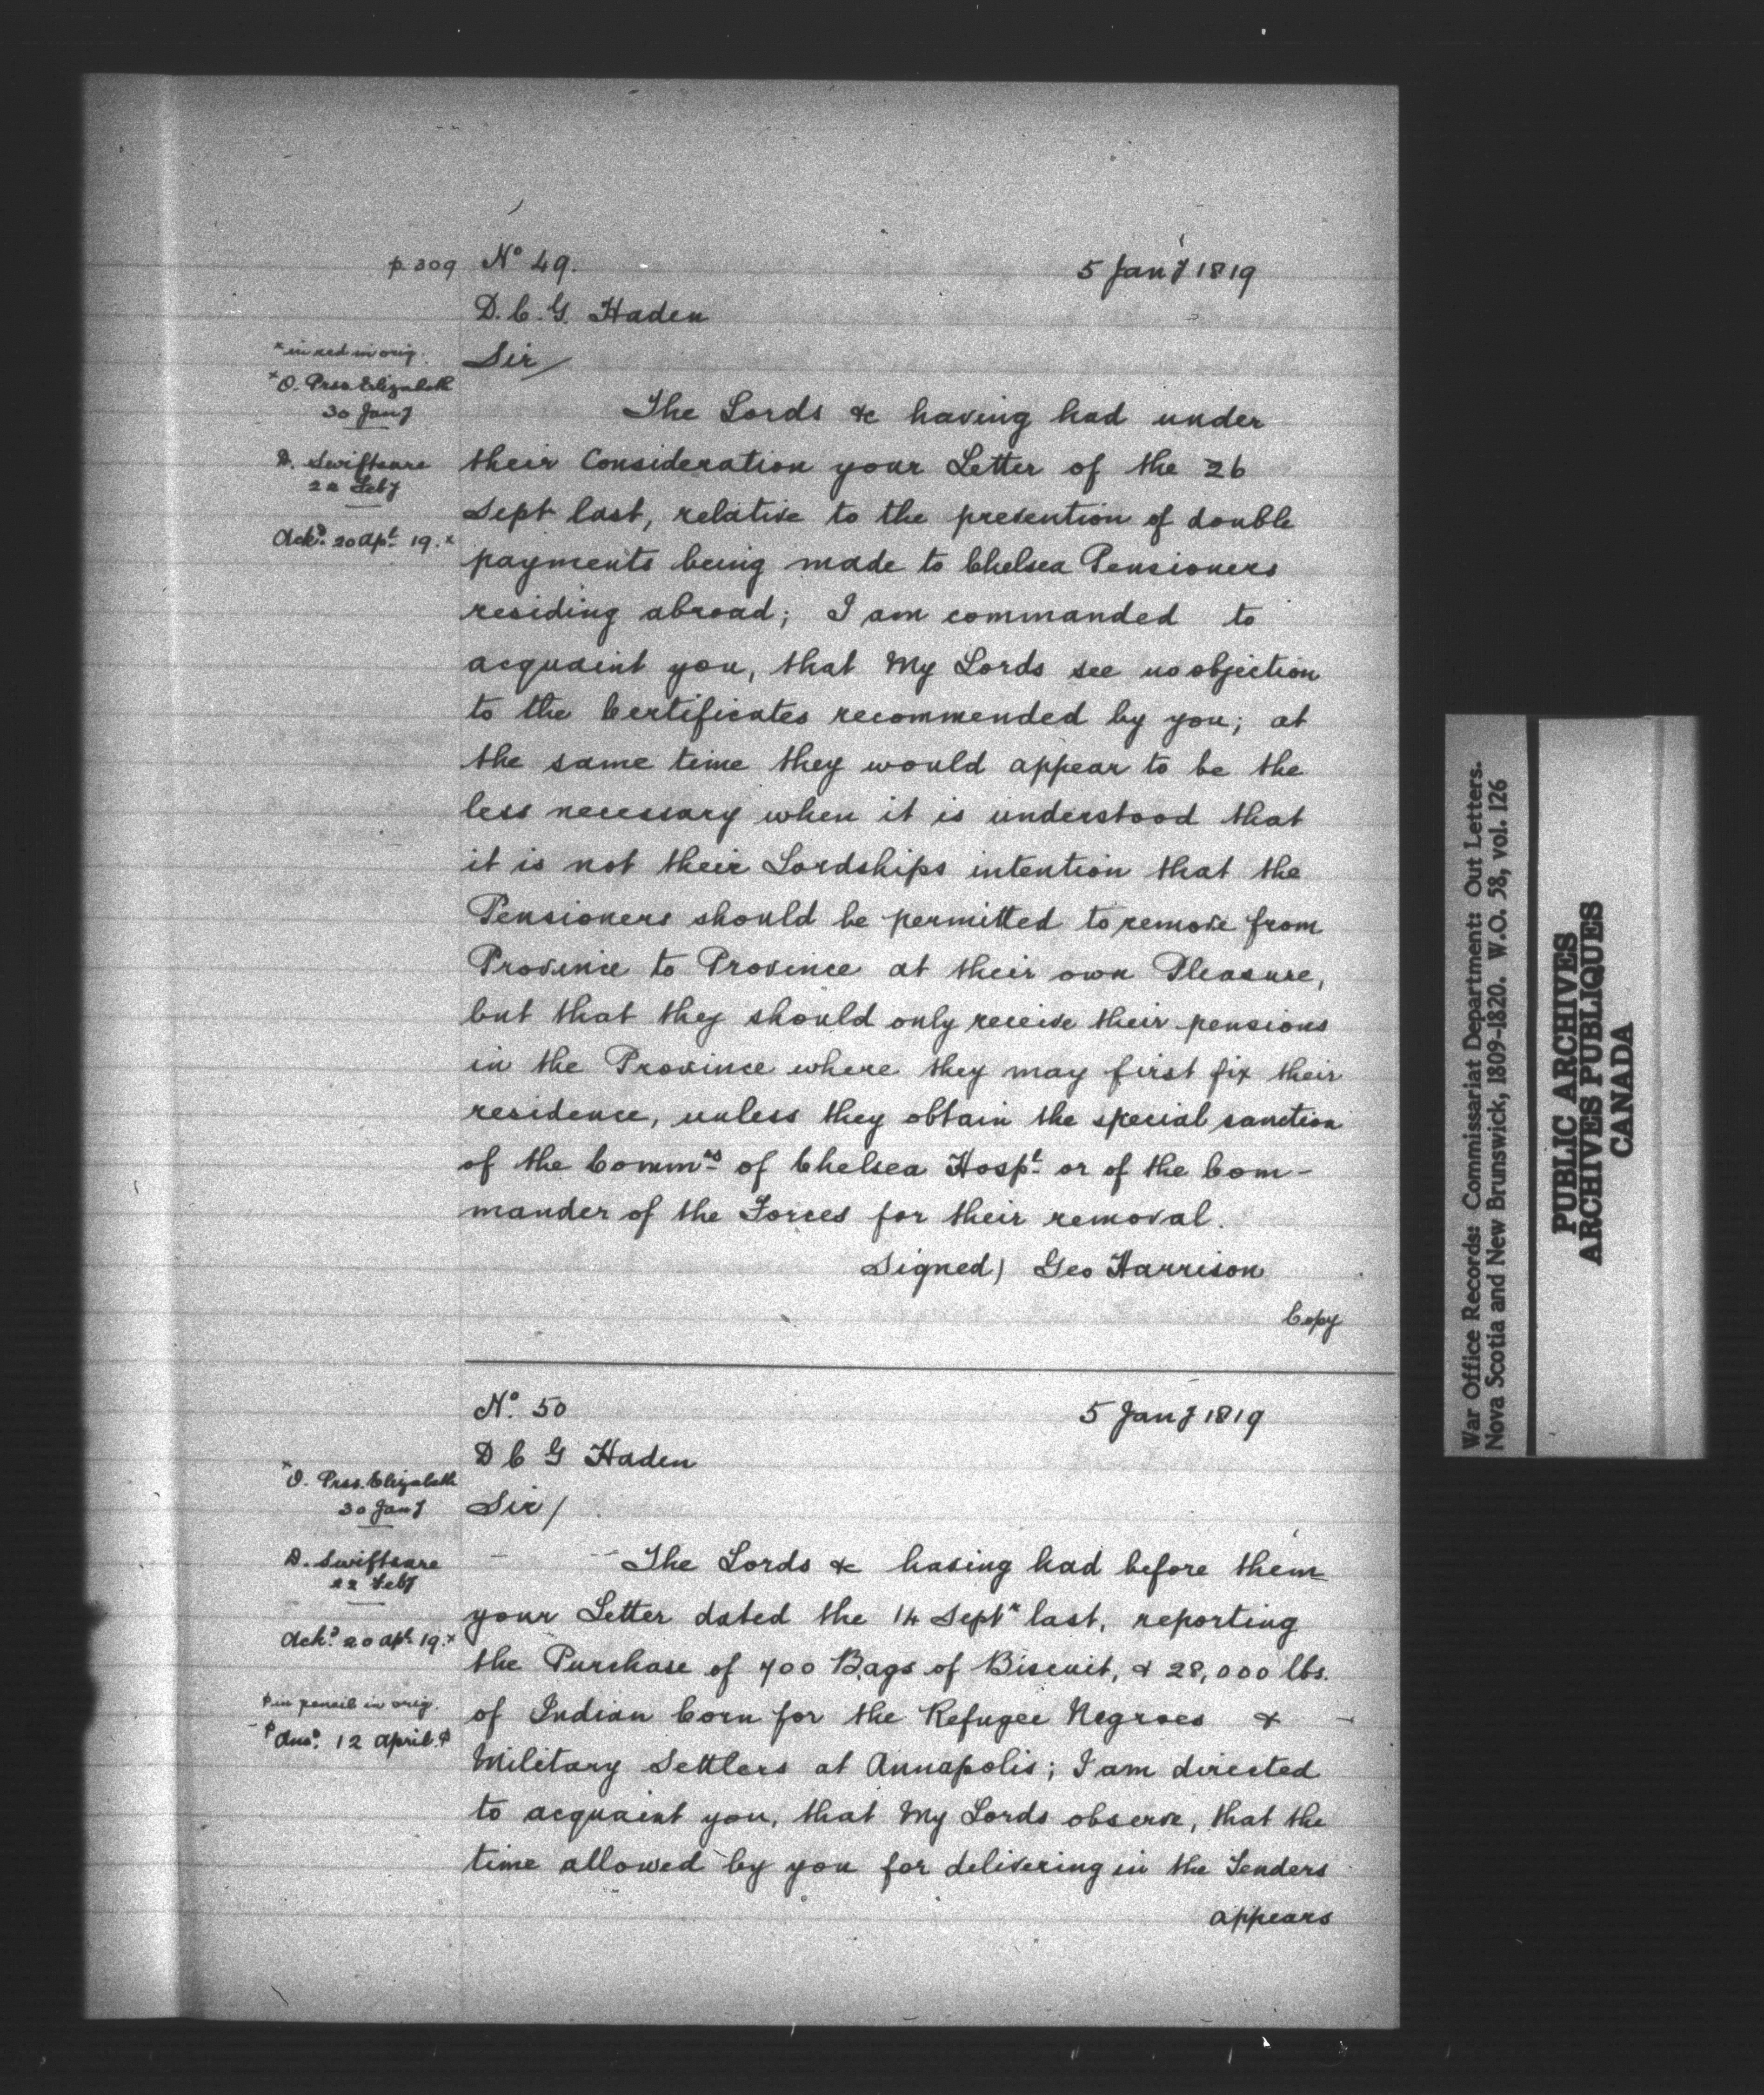 p 309 Nº 49. 5 Jany 1819
D. C. G. Haden
* in red in orig.
Sir/
* O. Prss Elizabeth
30 Jany
The Lords &c having had under
D. Swiftsure
22 Feby
their Consideration your Letter of the 26
Sept last, relative to the prevention of double
Ackd. 20 Apl. 19.*
payments being made to Chelsea Pensioners
residing abroad; I am commanded to
acquaint you, that My Lords see no objection
to the Certificates recommended by you; at
the same time they would appear to be the
less necessary when it is understood that
it is not their Lordships intention that the
Pensioners should be permitted to remove from
Province to Province at their own Pleasure,
but that they should only receive their pensions
in the Province where they may first fix their
residence, unless they obtain the special sanction
of the Commrs of Chelsea Hospl. or of the Com-
mander of the Forces for their removal.
Signed) Geo Harrison
Copy
Nº. 50 5 Jany 1819
D C G Haden
* O. Prss. Elizabeth
30 Jany
Sir/
D. Swiftsure
22 Feby
The Lords &c having had before them
your Letter dated the 14 Septr last, reporting
Ackd. 20 Apl. 19.*
the Purchase of 400 Bags of Biscuit, & 28,000 lbs.
ϕ in pencil in orig.
of Indian Corn for the Refugee Negroes &
ϕ Ansd. 12 April. ϕ
Military Settlers at Annapolis; I am directed
to acquaint you, that My Lords observe, that the
time allowed by you for delivering in the Tenders
appears
War Office Records: Commissariat Department: Out Letters.
Nova Scotia and New Brunswick, 1809-1820. W.O. 58, vol. 126
PUBLIC ARCHIVES
ARCHIVES PUBLIQUES
CANADA